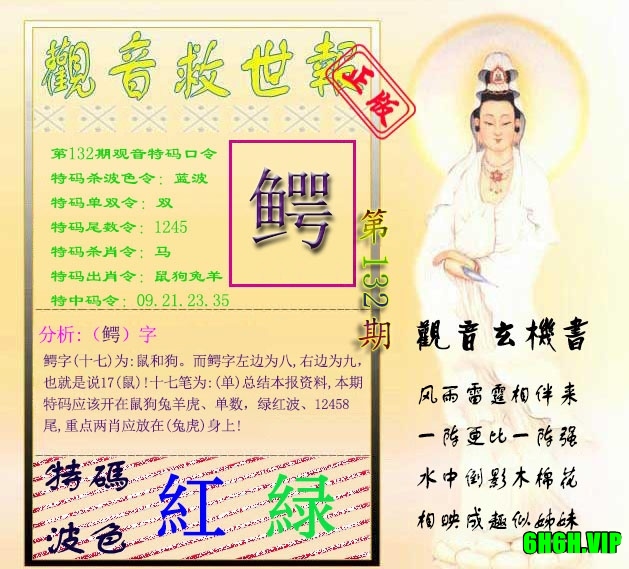 觀音救世報
正版
第132期观音特码口令
特码杀波色令: 蓝波
特码单双令: 双
特码尾数令: 1245
特码杀肖令: 马
特码出肖令: 鼠狗兔羊
特中码令: 09.21.23.35
鳄
第132期
分析:（鳄）字
鳄字(十七)为:鼠和狗。而鳄字左边为八,右边为九,
也就是说17(鼠)!十七笔为:(单)总结本报资料,本期
特码应该开在鼠狗兔羊虎、单数，绿红波、12458
尾,重点两肖应放在(兔虎)身上!
特碼
波色
紅 緑
觀音玄機書
风雨雷霆相伴来
一阵更比一阵强
水中倒影木棉花
相映成趣似姊妹
6H6H.VIP